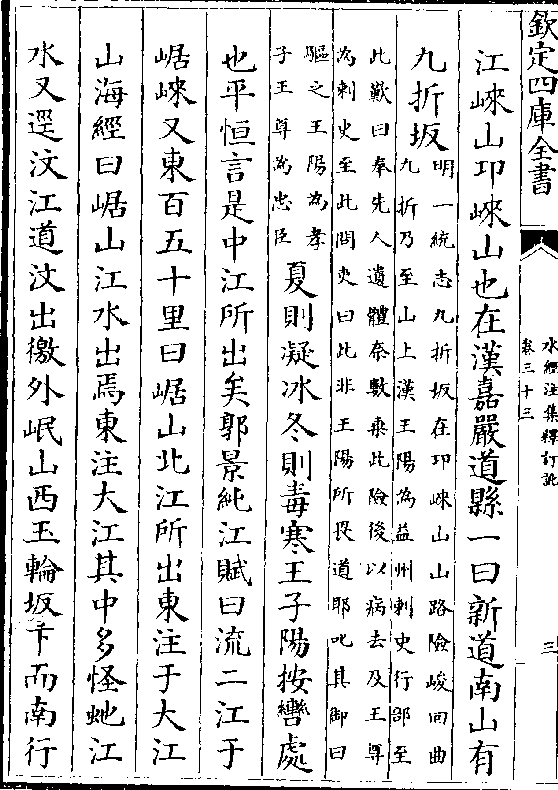 欽定四庫全書
水經注集釋訂訛
卷三十三
三
江崍山邛崍山也在漢嘉嚴道縣一曰新道南山有
九折坂
明一統志九折坂在邛崍山山路險峻回曲
九折乃至山上漢王陽為益州刺史行部至
此歎曰奉先人遺體奈數乘此險後以病去及王尊
為刺史至此問吏曰此非王陽所畏道耶叱其御曰
驅之王陽為孝
子王尊為忠臣
夏則凝冰冬則毒寒王子陽按轡處
也平恒言是中江所出矣郭景純江賦曰流二江于
崌崍又東百五十里曰崌山北江所出東注于大江
山海經曰崌山江水出焉東注大江其中多怪虵江
水又逕汶江道汶出徼外岷山西玉輪坂下而南行